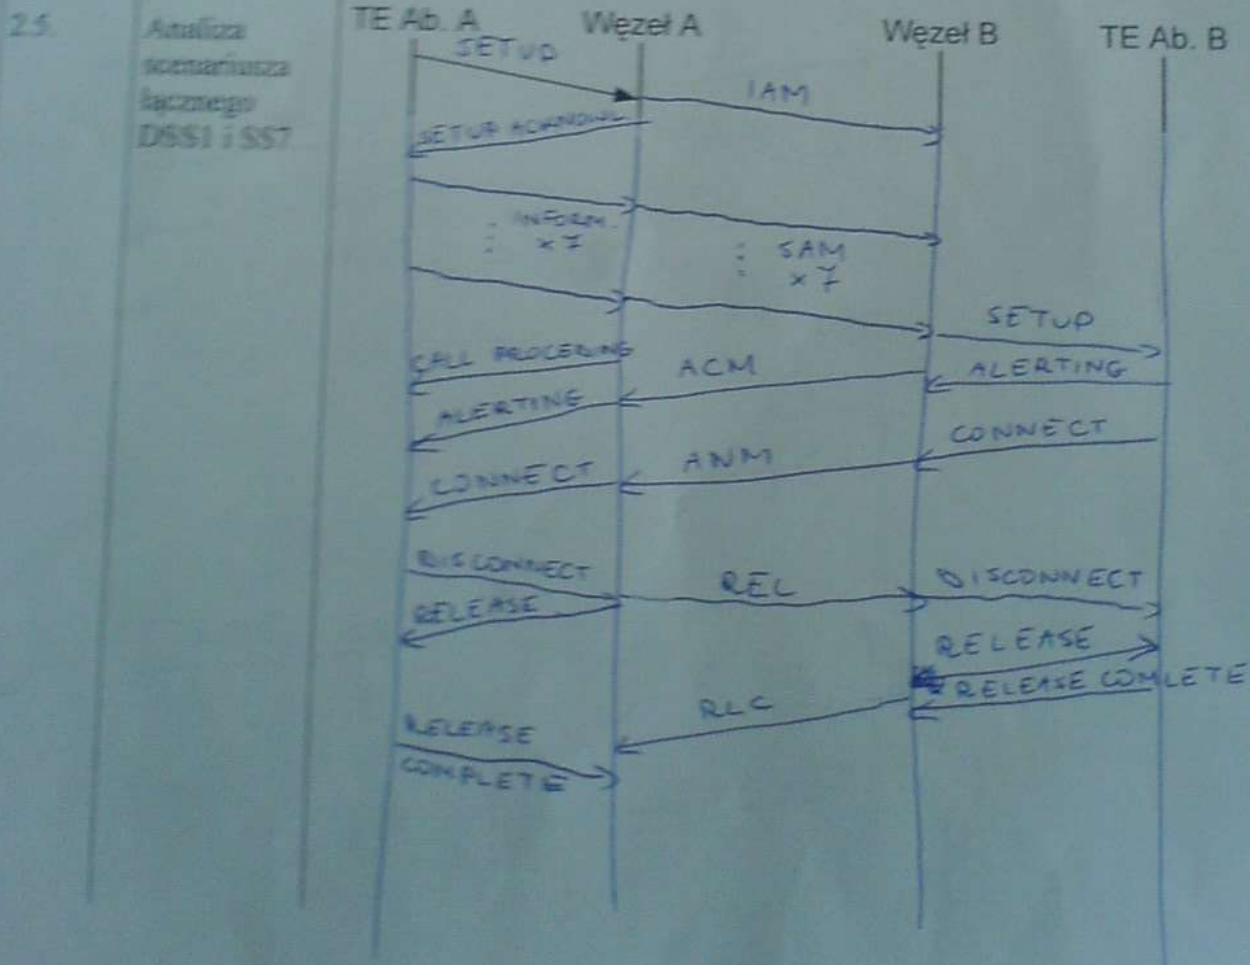 2.5.
Analiza
scenariusza
łącznego
DSS1 i SS7
TE Ab. A
Węzeł A
Węzeł B
TE Ab. B
SETUP
IAM
SETUP ACKNOWL
INFORM.
x 7
SAM
x 7
SETUP
CALL PROCEEDING
ACM
ALERTING
ALERTING
CONNECT
ANM
CONNECT
DISCONNECT
REL
DISCONNECT
RELEASE
RELEASE
RELEASE COMLETE
RLC
RELEASE
COMPLETE